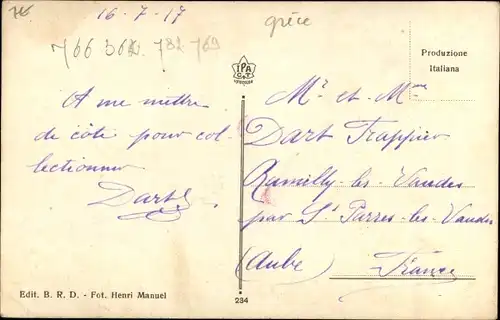 16-7-17
grèce
766 782 769
IPA
C T
Produzione
Italiana
A me mettre
de côté pour col
lectionner
Dart
Mr et Mme
Dart Trappier
Rumilly-les-Vaudes
par St Parres-les-Vaudes
(Aube) France
Edit. B. R. D. - Fot. Henri Manuel
234